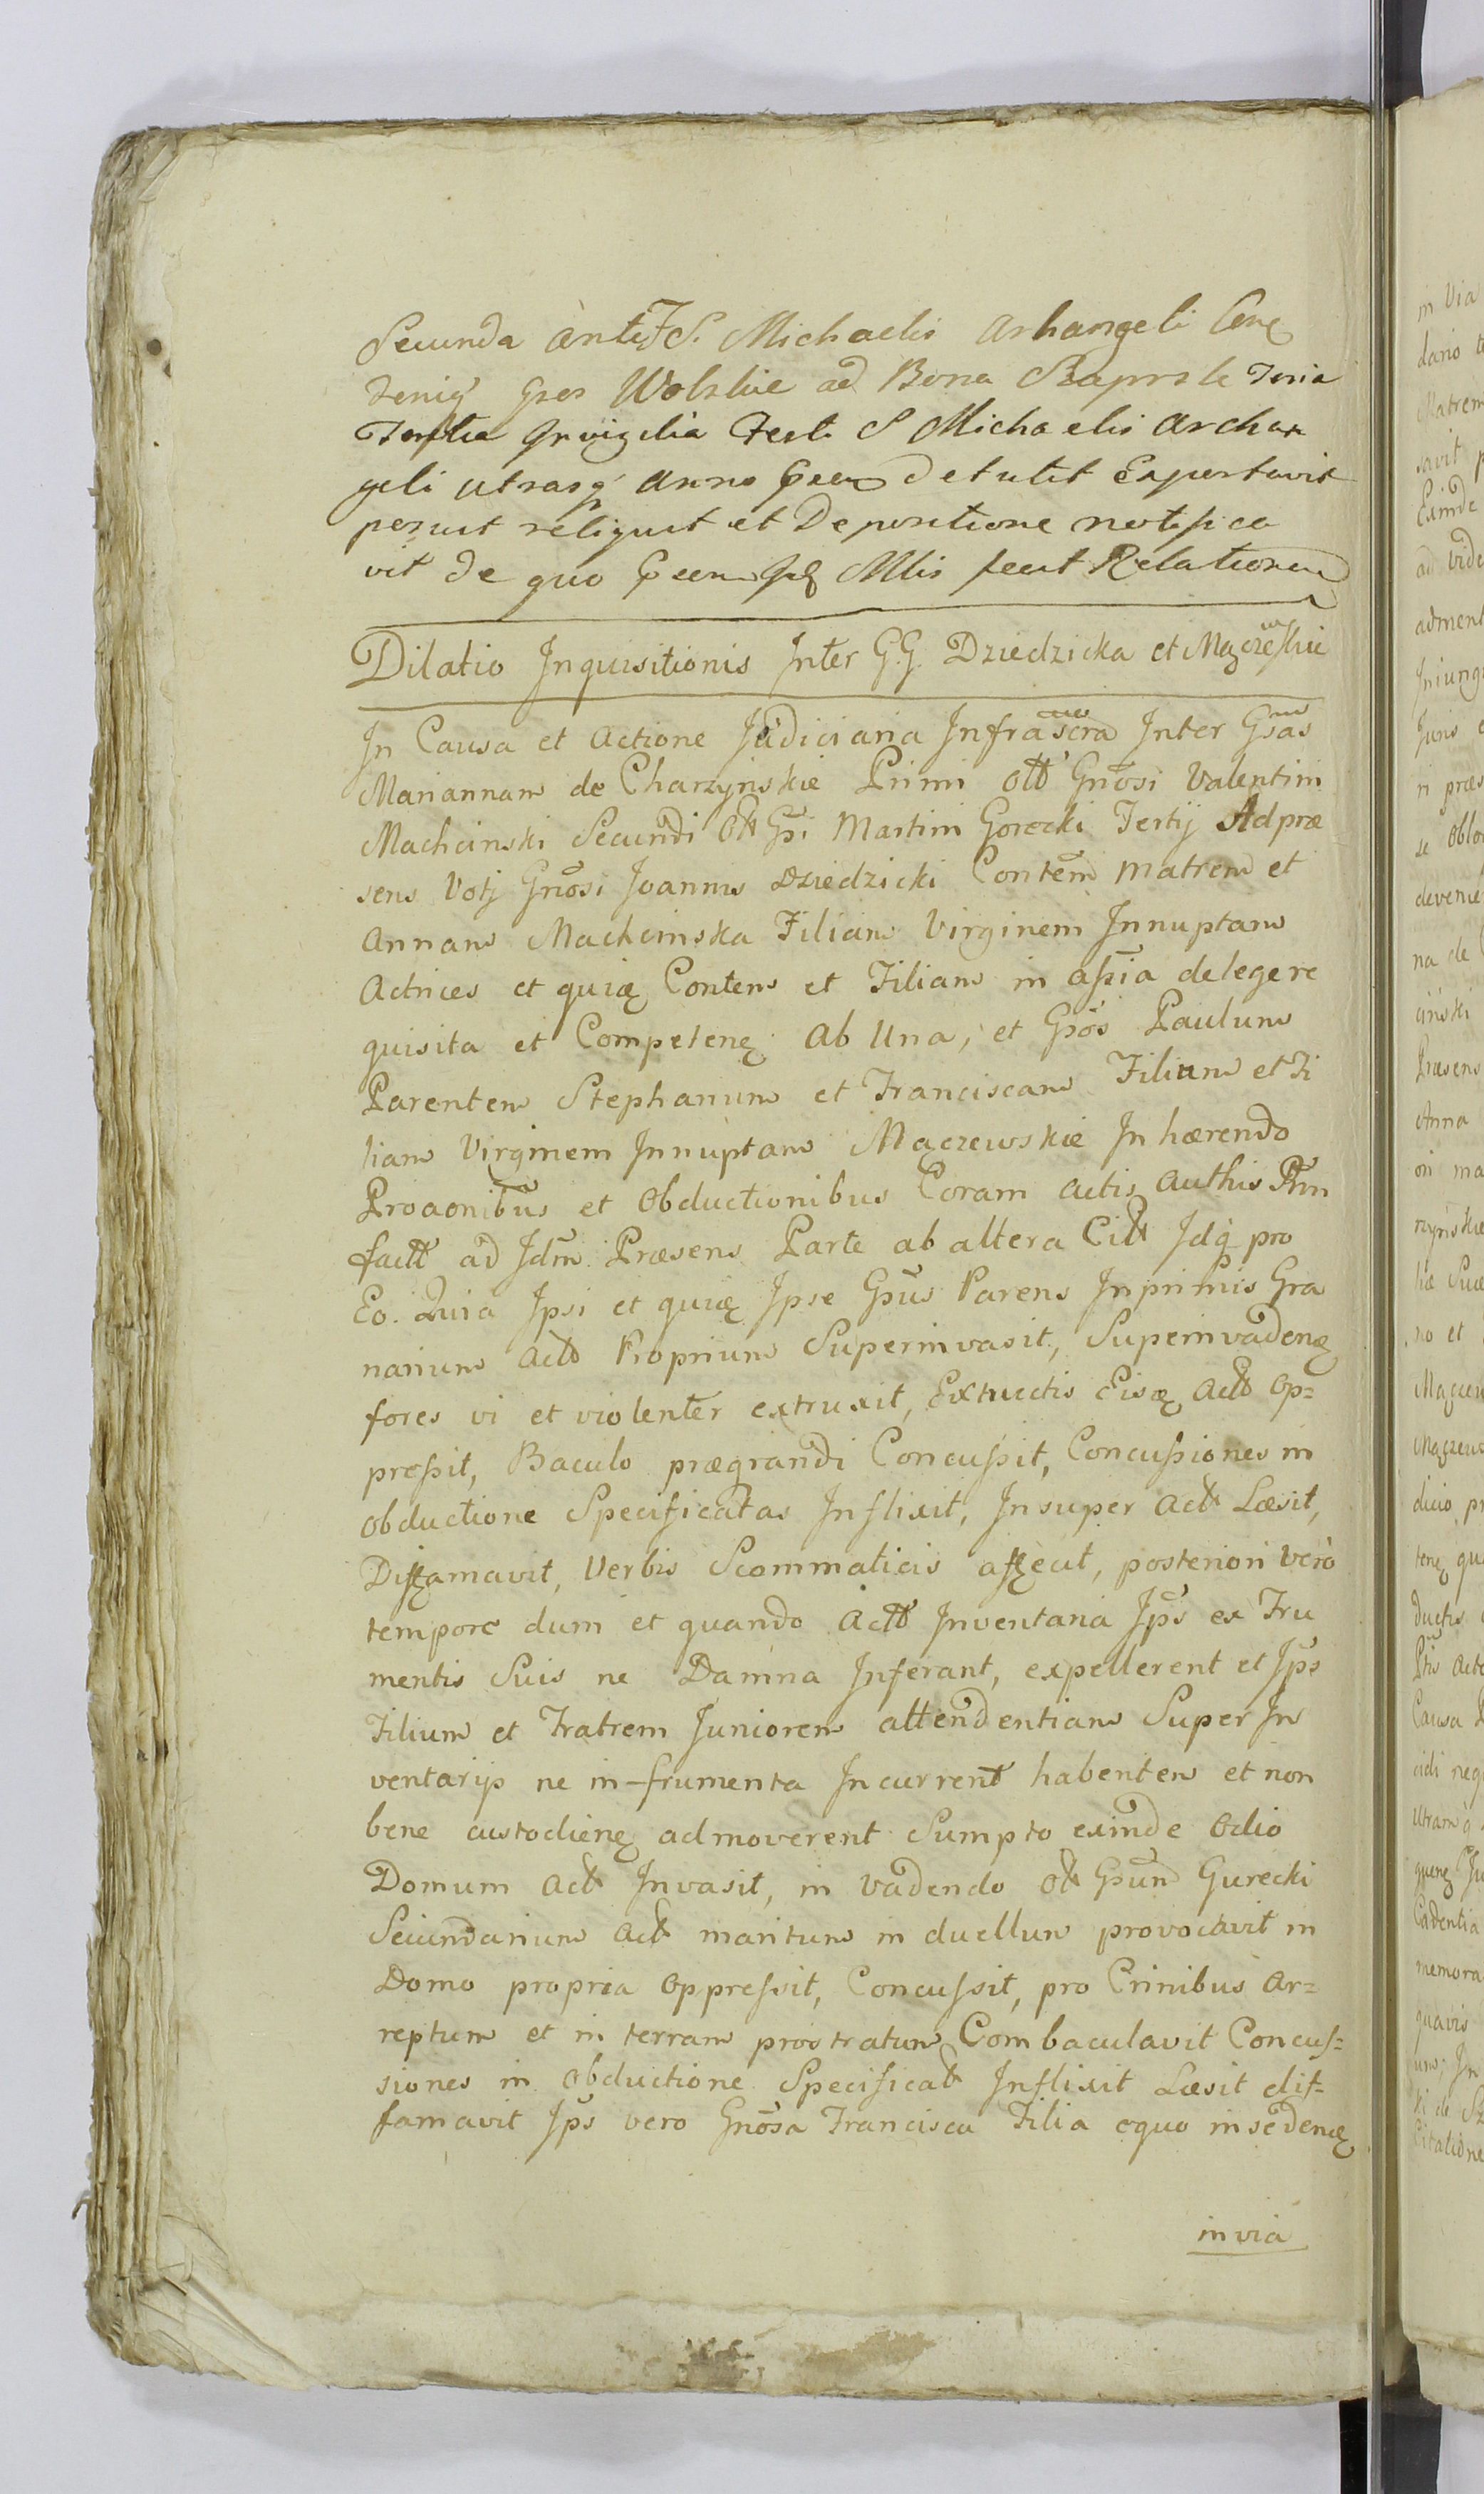 Secunda ante F S. Michaelis Arhangeli
Gsos Wolskie ad Bona Feria
Tertia In vigilia Festi S Michaelis Archan
geli utrasq Anno detulit Exportavit
posuit reliquit et De positione notifica
vit de quo Mlis fecit Relationem
Dilatio Inquisitionis Inter G.G. Dziedzicka et Mączewskie
In Causa et Actione Judiciaria Infrascra Inter Gsas
Mariannam de Charzynskie Primi Gnosi Valentini
Machcinski Secundi Gsi Martini Gorecki Tertij Ad præ
sens Votj Gnosi Joannis Dziedzicki Contem Matrem et
Annam Machcinska Filiam Virginem Innuptam
Actrices et quidę Contem et Filiam in assia de lege re
quisita et Competenę Ab Una, et Gsos Paulum
Parentem Stephanum et Franciscam Filium et Fi
liam Virginem Innuptam Mączewskie Inhærendo
Proaonibus et Obductionibus Coram Actis Authis Ptm
factt ad Idm Præsens Parte ab altera Citt Idq pro
Eo. Quia Ipsi et quidę Ipse Gsus Parens Inprimis Gra
narium Act Proprium Superinvasit, Superinvadenę
fores vi et violenter extruxit, Extructis Eisdę Act Op=
pressit, Baculo prægrandi Concussit, Concussiones in
obductione Specificatas Inflixit, Insuper Act Læsit,
Diffamavit, Verbis Scommaticis affecit, posteriori Vero
tempore dum et quando Actt Inventaria Ips ex Fru
mentis Suis ne Damna Inferant, expellerent et Ips
Filium et Fratrem Juniorem attendentiam Super In
ventarijs ne in frumenta Incurrent habentem et non
bene custodienę admoverent Sumpto exinde Odio
Domum Act Invasit, in vadendo Gsum Gurecki
Secundarium Act maritum in duellum provocavit in
Domo propria Oppressit, Concussit, pro Crinibus Ar=
reptum et in terram prostratum Combaculavit Concus=
siones in Obductione Specificat Inflixit Læsit dif=
famavit Ips vero Gnosa Francisca Filia equo insedenę
in via